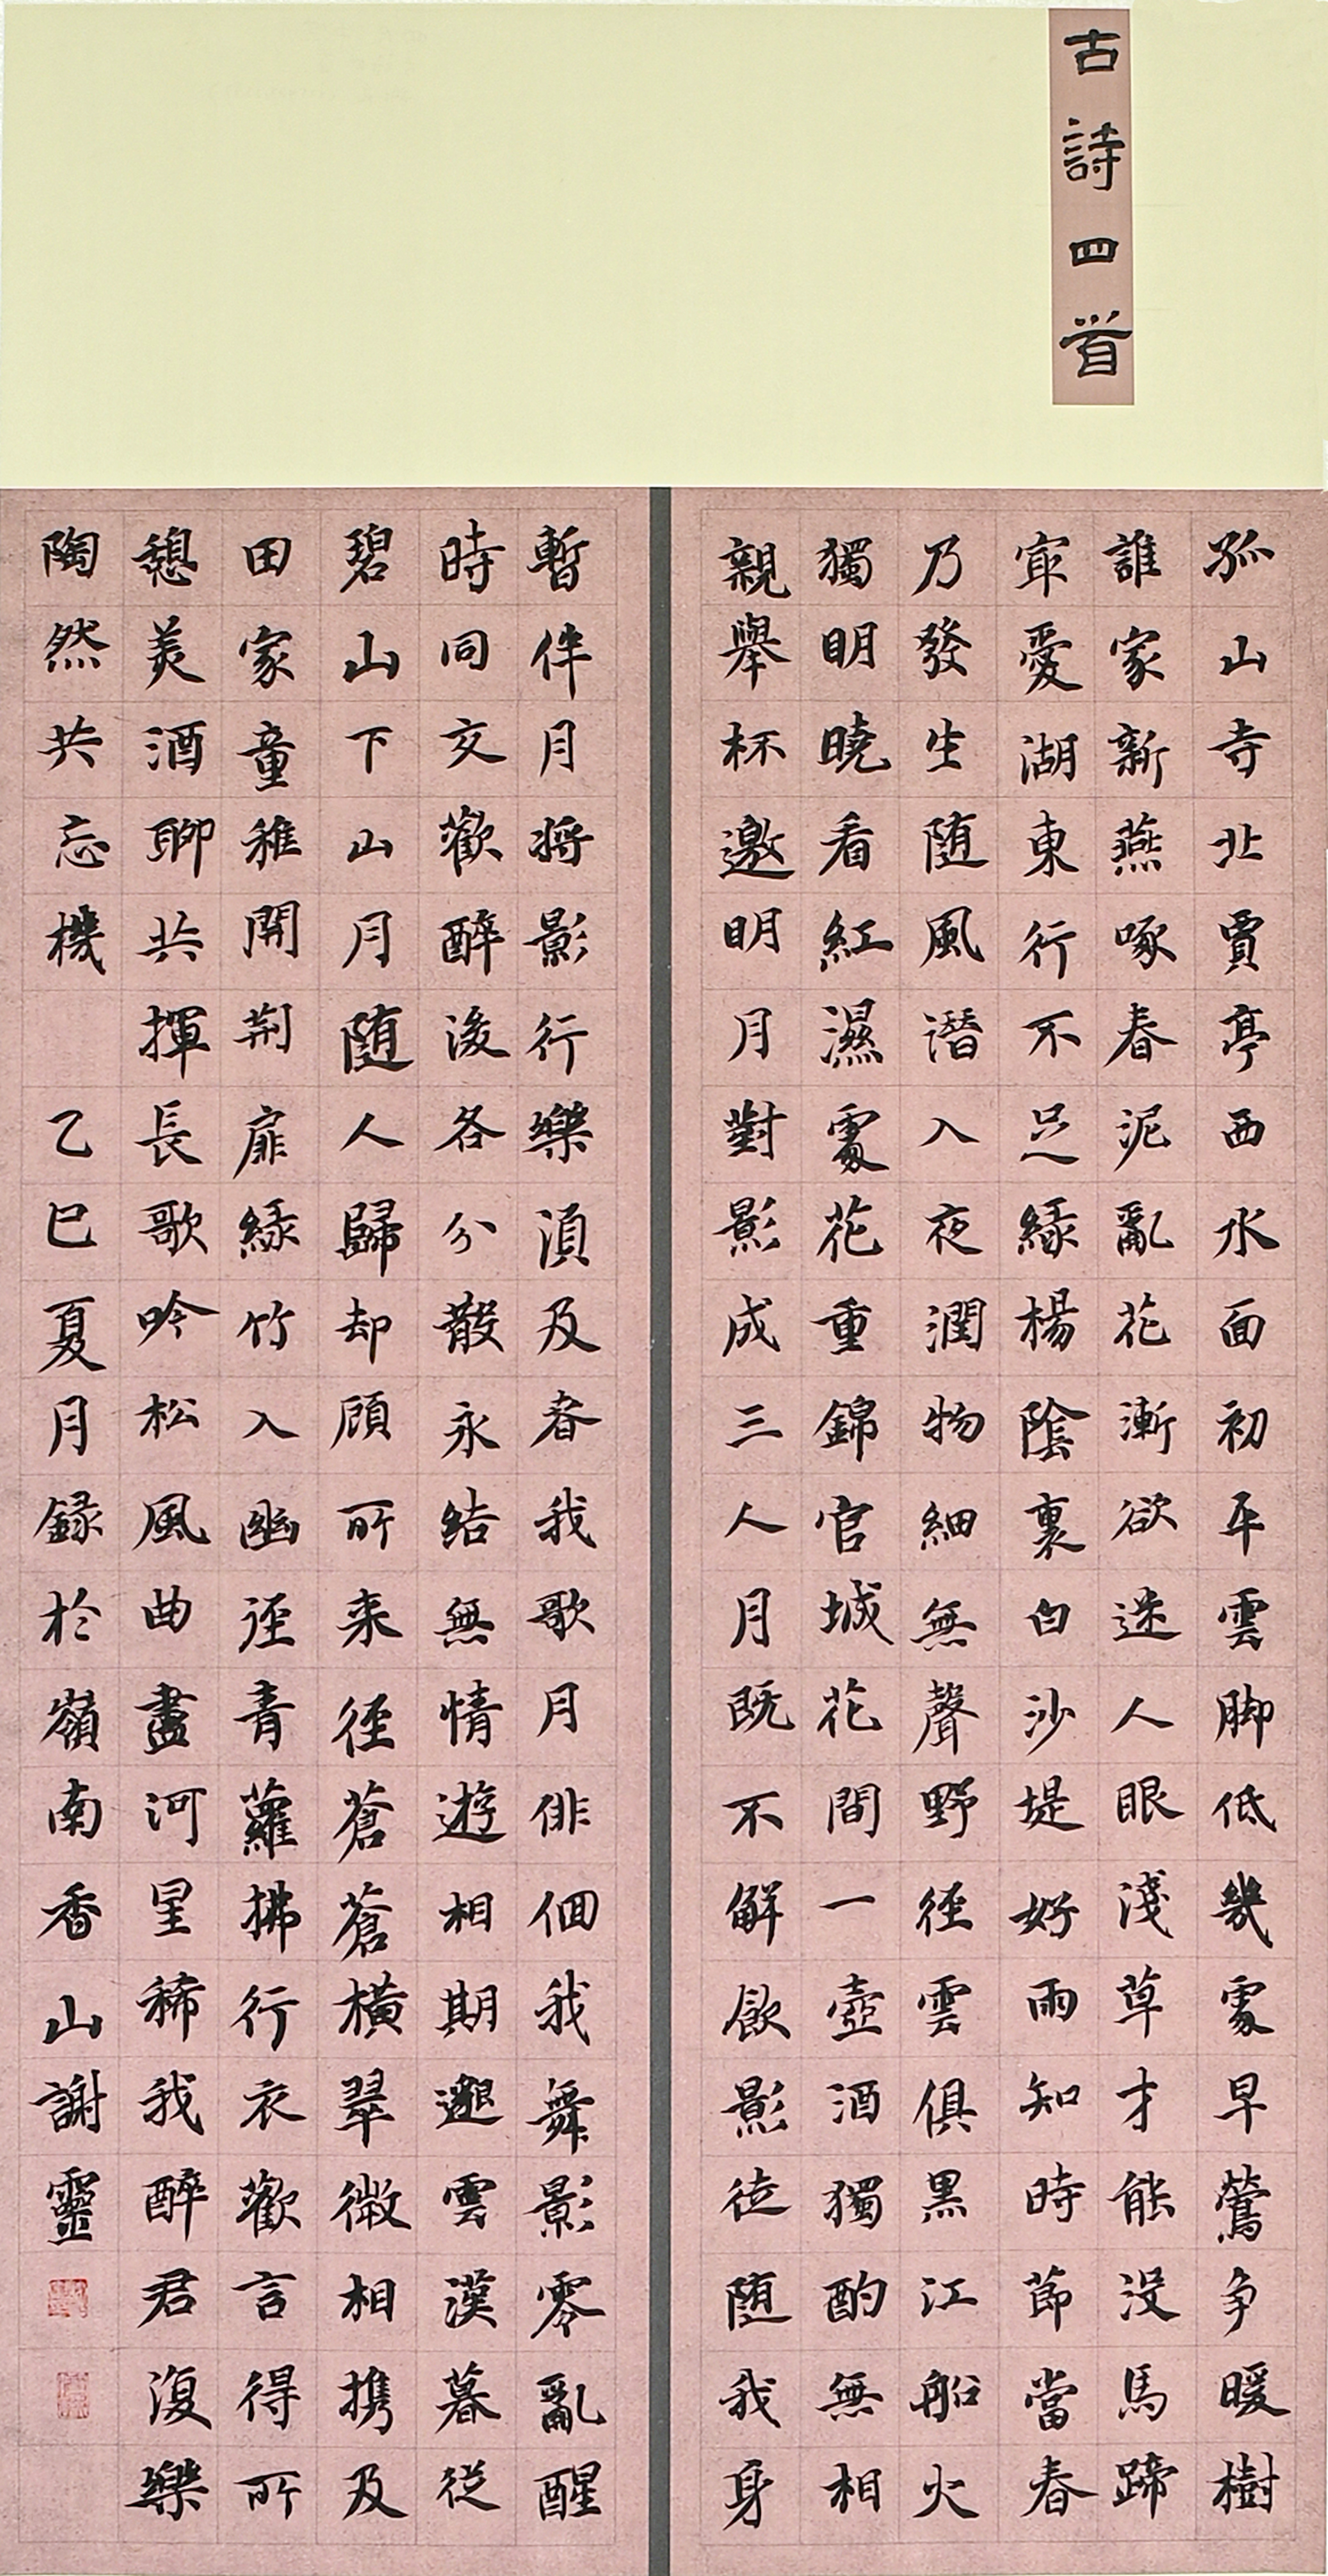 古詩四首
孤山寺北賈亭西水面初平雲脚低幾處早鶯争暖樹
誰家新燕啄春泥亂花漸欲迷人眼淺草才能没馬蹄
寂愛湖東行不足緑楊陰裏白沙堤好雨知時節當春
乃發生随風潛入夜潤物細無聲野徑雲俱黑江船火
獨明曉看紅濕處花重錦官城花間一壺酒獨酌無相
親舉杯邀明月對影成三人月既不解飲影徒随我身
暫伴月将影行樂須及春我歌月徘徊我舞影零亂醒
時同交歡醉後各分散永結無情遊相期邈雲漢暮從
碧山下山月随人歸却顧所来徑蒼蒼横翠微相携及
田家童稚開荆扉緑竹入幽徑青蘿拂行衣歡言得所
憩美酒聊共揮長歌吟松風曲盡河星稀我醉君復樂
陶然共忘機 乙巳夏月録於嶺南香山謝靈